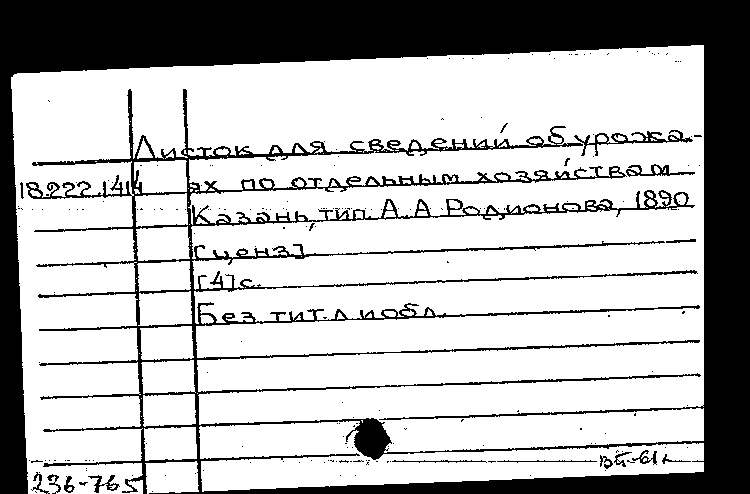 Листок для сведений об урожа-
18.222.1414 ях по отдельным хозяйствам
Казань, тип. А. А Родионова, 1890
[ценз]
[4]с.
Без тит. л и обл.
236-765